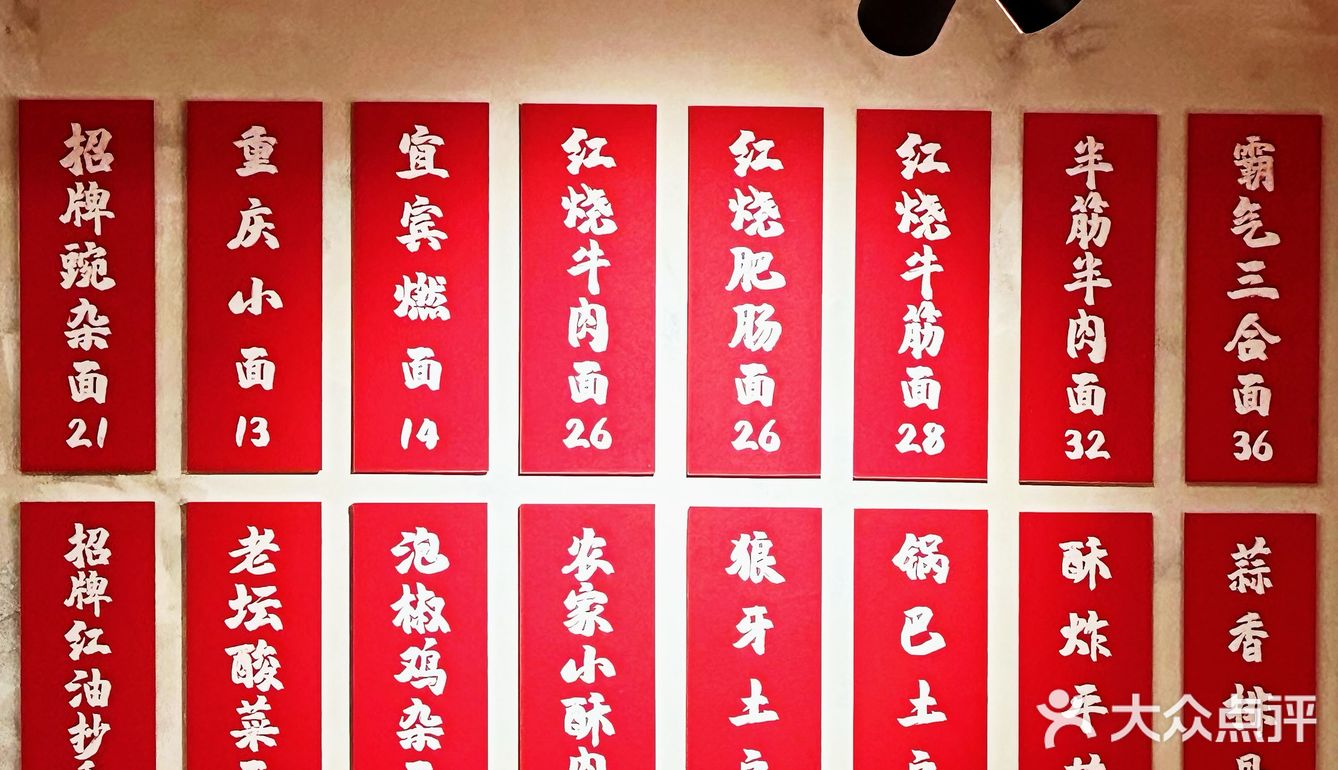 招牌豌杂面
21
重庆小面
13
宜宾燃面
14
红烧牛肉面
26
红烧肥肠面
26
红烧牛筋面
28
半筋半肉面
32
霸气三合面
36
招牌红油抄
老坛酸菜
泡椒鸡杂
农家小酥肉
狼牙土
锅巴土
酥炸
蒜香排
大众点评